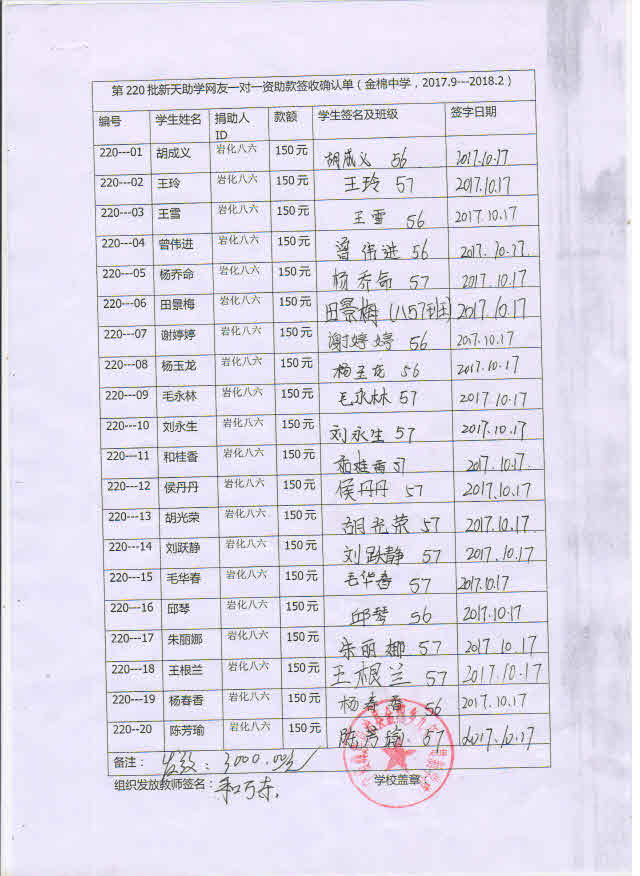 第 220 批新天助学网友一对一资助款签收确认单（金棉中学，2017.9---2018.2）
编号 学生姓名 捐助人ID 款额 学生签名及班级 签字日期
220---01 胡成义 岩化八六 150元 胡成义 56 2017.10.17
220---02 王玲 岩化八六 150元 王玲 57 2017.10.17
220---03 王雪 岩化八六 150元 王雪 56 2017.10.17
220---04 曾伟进 岩化八六 150元 曾伟进 56 2017.10.17.
220---05 杨乔命 岩化八六 150元 杨乔命 57 2017.10.17
220---06 田景梅 岩化八六 150元 田景梅 (八57班) 2017.10.17
220---07 谢婷婷 岩化八六 150元 谢婷婷 56 2017.10.17
220---08 杨玉龙 岩化八六 150元 杨玉龙 56 2017.10.17
220---09 毛永林 岩化八六 150元 毛永林 57 2017.10.17
220---10 刘永生 岩化八六 150元 刘永生 57 2017.10.17
220---11 和桂香 岩化八六 150元 和桂香 57 2017.10.17.
220---12 侯丹丹 岩化八六 150元 侯丹丹 57 2017.10.17
220---13 胡光荣 岩化八六 150元 胡光荣 57 2017.10.17
220---14 刘跃静 岩化八六 150元 刘跃静 57 2017.10.17
220---15 毛华春 岩化八六 150元 毛华春 57 2017.10.17
220---16 邱琴 岩化八六 150元 邱琴 56 2017.10.17
220---17 朱丽娜 岩化八六 150元 朱丽娜 57 2017.10.17
220---18 王根兰 岩化八六 150元 王根兰 57 2017.10.17
220---19 杨春香 岩化八六 150元 杨春香 56 2017.10.17
220--20 陈芳瑜 岩化八六 150元 陈芳瑜. 57 2017.10.17
备注： 发放：3000.00元
组织发放教师签名： 学校盖章：